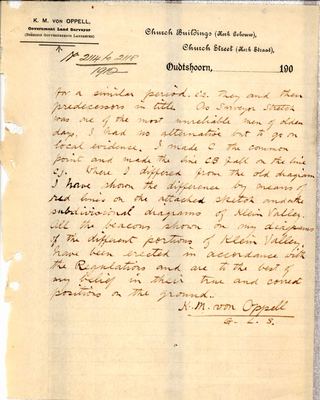 K. M. VON OPPELL,
Government Land Surveyor
Church Buildings (Kerk Gebouw),
Church Street (Kerk Straat),
No 2114 to 2118
1902
Oudtshoorn, 190
for a similar period. i.e. they and their
predecessors in title. As Surveyor Stretch
was one of the most unreliable men of olden
days, I had no alternative but to go on
local evidence. I made C the common
point and made the line CB fall on the line
CJ. Where I differed from the old diagram
I have shown the difference by means of
red lines on the attached sketch and on the
subdivisional diagrams of Klein Valley.
All the beacons shown on my diagrams
of the different portions of Klein Valley,
have been erected in accordance with
the Regulations and are to the best of
my belief in their true and correct
positions on the ground.
K. M. von Oppell
G. L. S.